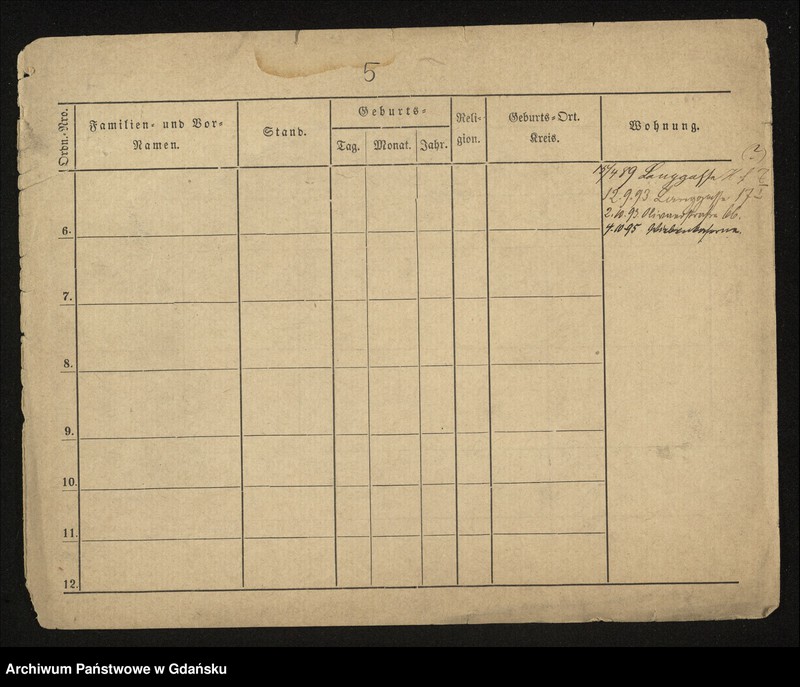 5
Ordn.-Nro.
Familien- und Vor-
Namen.
Stand.
Geburts-
Tag.
Monat.
Jahr.
Reli-
gion.
Geburts-Ort.
Kreis.
Wohnung.
(2)
15/4 89 Langgasse
12.9.93 Langgasse 17
2.10.93
4.10 95
6.
7.
8.
9.
10.
11.
12.
Archiwum Państwowe w Gdańsku